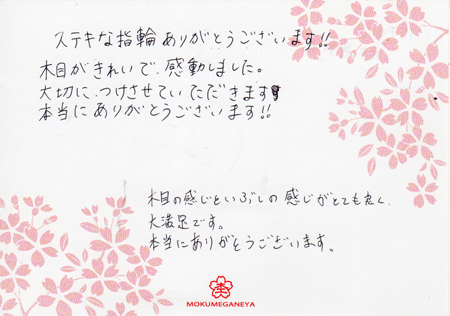 ステキな指輪ありがとうございます!!
木目がきれいで、感動しました。
大切に、つけさせていただきます
本当にありがとうございます!!
木目の感じといぶしの感じがとても良く、
大満足です。
本当にありがとうございます。
MOKUMEGANEYA